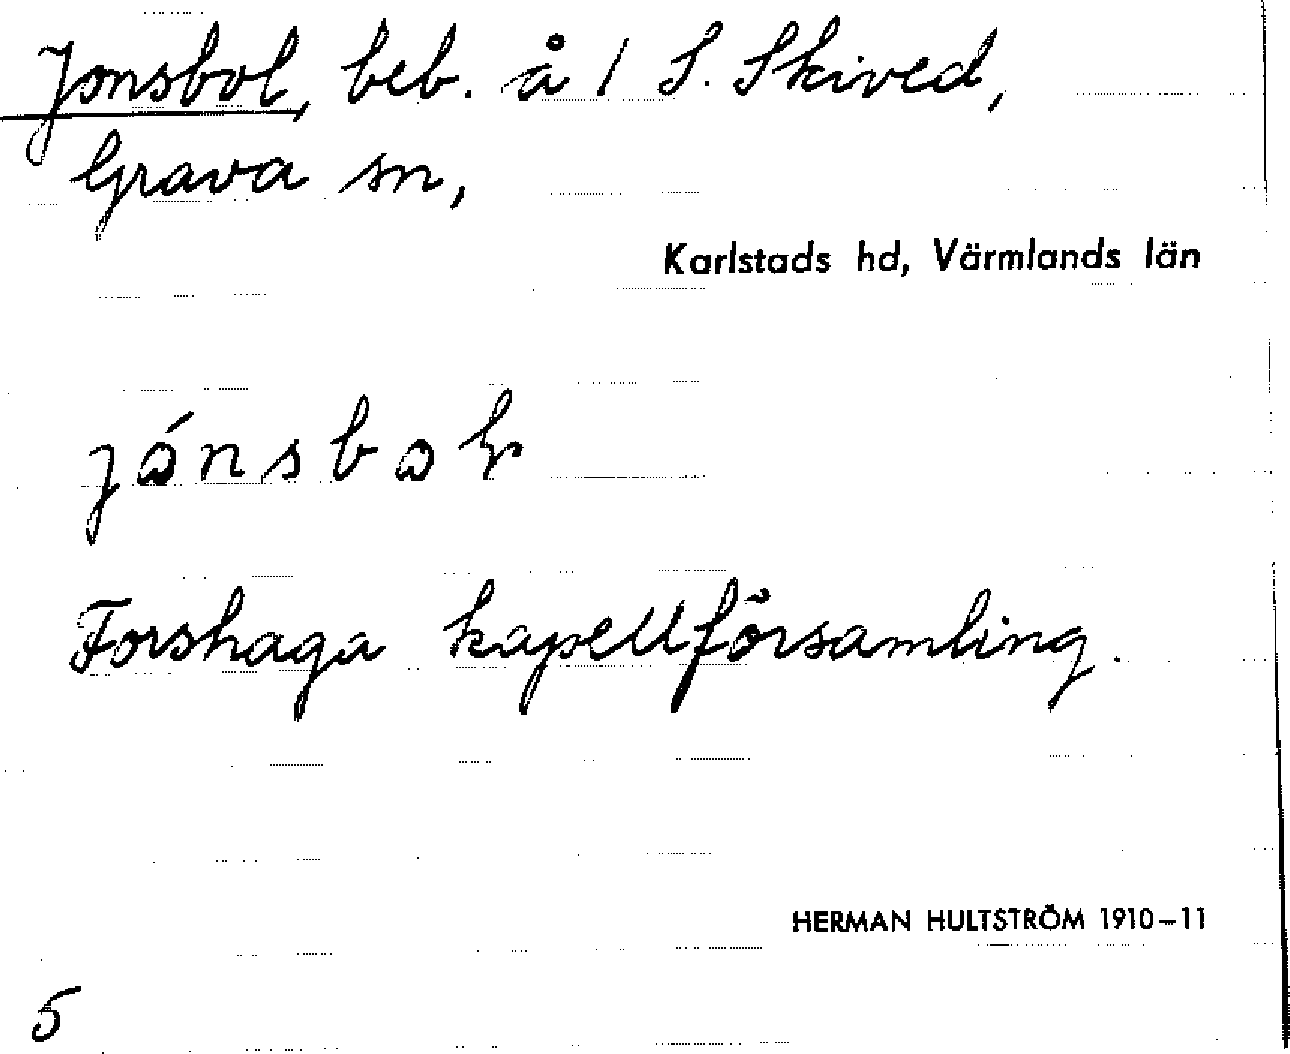 Jonsbol, beb. å 1 S. Skived,
Grava sn,
Karlstads hd, Värmlands län
jónsboḷ
Forshaga kapellförsamling.
HERMAN HULTSTRÖM 1910–11
5